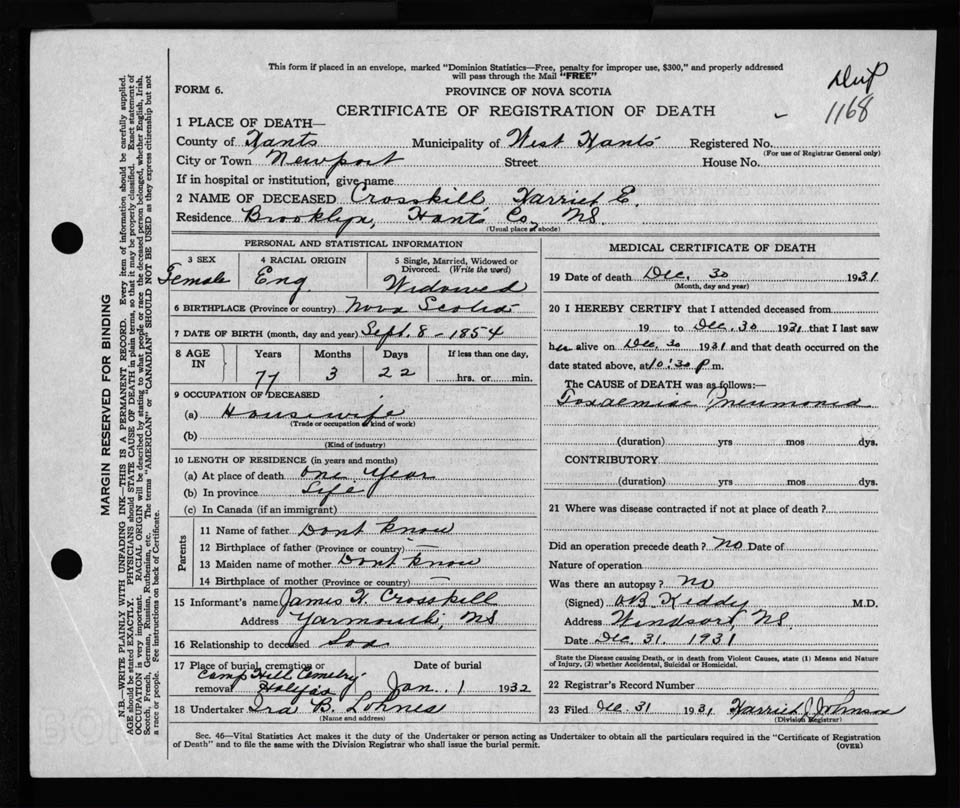 This form if placed in an envelope, marked "Dominion Statistics—Free, penalty for improper use, $300," and properly addressed
will pass through the Mail "FREE"
FORM 6.
PROVINCE OF NOVA SCOTIA
CERTIFICATE OF REGISTRATION OF DEATH
1168
1 PLACE OF DEATH—
County of Hants Municipality of West Hants Registered No.
(For use of Registrar General only)
City or Town Newport Street House No.
If in hospital or institution, give name
2 NAME OF DECEASED Crosskill Harriet E.
Residence Brooklyn, Hants Co, N.S.
(Usual place of abode)
PERSONAL AND STATISTICAL INFORMATION
3 SEX
Female
4 RACIAL ORIGIN
Eng.
5 Single, Married, Widowed or
Divorced. (Write the word)
Widowed
6 BIRTHPLACE (Province or country) Nova Scotia
7 DATE OF BIRTH (month, day and year) Sept. 8 - 1854
8 AGE
IN
Years
77
Months
3
Days
22
If less than one day,
hrs. or min.
9 OCCUPATION OF DECEASED
(a) Housewife
(Trade or occupation of kind of work)
(b)
(Kind of industry)
10 LENGTH OF RESIDENCE (in years and months)
(a) At place of death one year
(b) In province Life
(c) In Canada (if an immigrant)
Parents
11 Name of father Dont know
12 Birthplace of father (Province or country) —
13 Maiden name of mother Dont know
14 Birthplace of mother (Province or country) —
15 Informant's name James H. Crosskill
Address Yarmouth, N.S
16 Relationship to deceased Son
17 Place of burial, cremation or
removal
Camp Hill Cemetery
Halifax
Date of burial
Jan. 1 1932
18 Undertaker Ira B. Lohnes
(Name and address)
MEDICAL CERTIFICATE OF DEATH
19 Date of death Dec. 30 1931
(Month, day and year)
20 I HEREBY CERTIFY that I attended deceased from
19 to Dec. 30 1931 that I last saw
her alive on Dec. 30 1931 and that death occurred on
date stated above, at 10:30 P m.
The CAUSE OF DEATH was as follows:—
Pneumonia
(duration) yrs mos dys.
CONTRIBUTORY
(duration) yrs mos dys.
21 Where was disease contracted if not at place of death?
Did an operation precede death? No Date of
Nature of operation
Was there an autopsy? No
(Signed) OB Keddy M.D.
Address Windsor, N.S.
Date Dec. 31. 1931
State the Disease causing Death, or in death from Violent Causes, state (1) Means and Nature
of Injury, (2) whether Accidental, Suicidal or Homicidal.
22 Registrar's Record Number
23 Filed Dec. 31 1931 Harriet J Johnson
(Division Registrar)
Sec. 46—Vital Statistics Act makes it the duty of the Undertaker or person acting as Undertaker to obtain all the particulars required in the "Certificate of Registration
of Death" and to file the same with the Division Registrar who shall issue the burial permit.
(OVER)
MARGIN RESERVED FOR BINDING
N.B.—WRITE PLAINLY WITH UNFADING INK—THIS IS A PERMANENT RECORD. Every item of information should be carefully supplied.
AGE should be stated EXACTLY. PHYSICIANS should STATE CAUSE OF DEATH in plain terms, so that it may be properly classified. Exact statement of
OCCUPATION is very important. RACIAL ORIGIN will be described by stating to what people or race the deceased person belonged, whether English, Irish,
Scotch, French, German, Russian, Ruthenian, etc. The terms "AMERICAN" or "CANADIAN" SHOULD NOT BE USED as they express citizenship but not
a race or people. Fee instructions on back of Certificate.